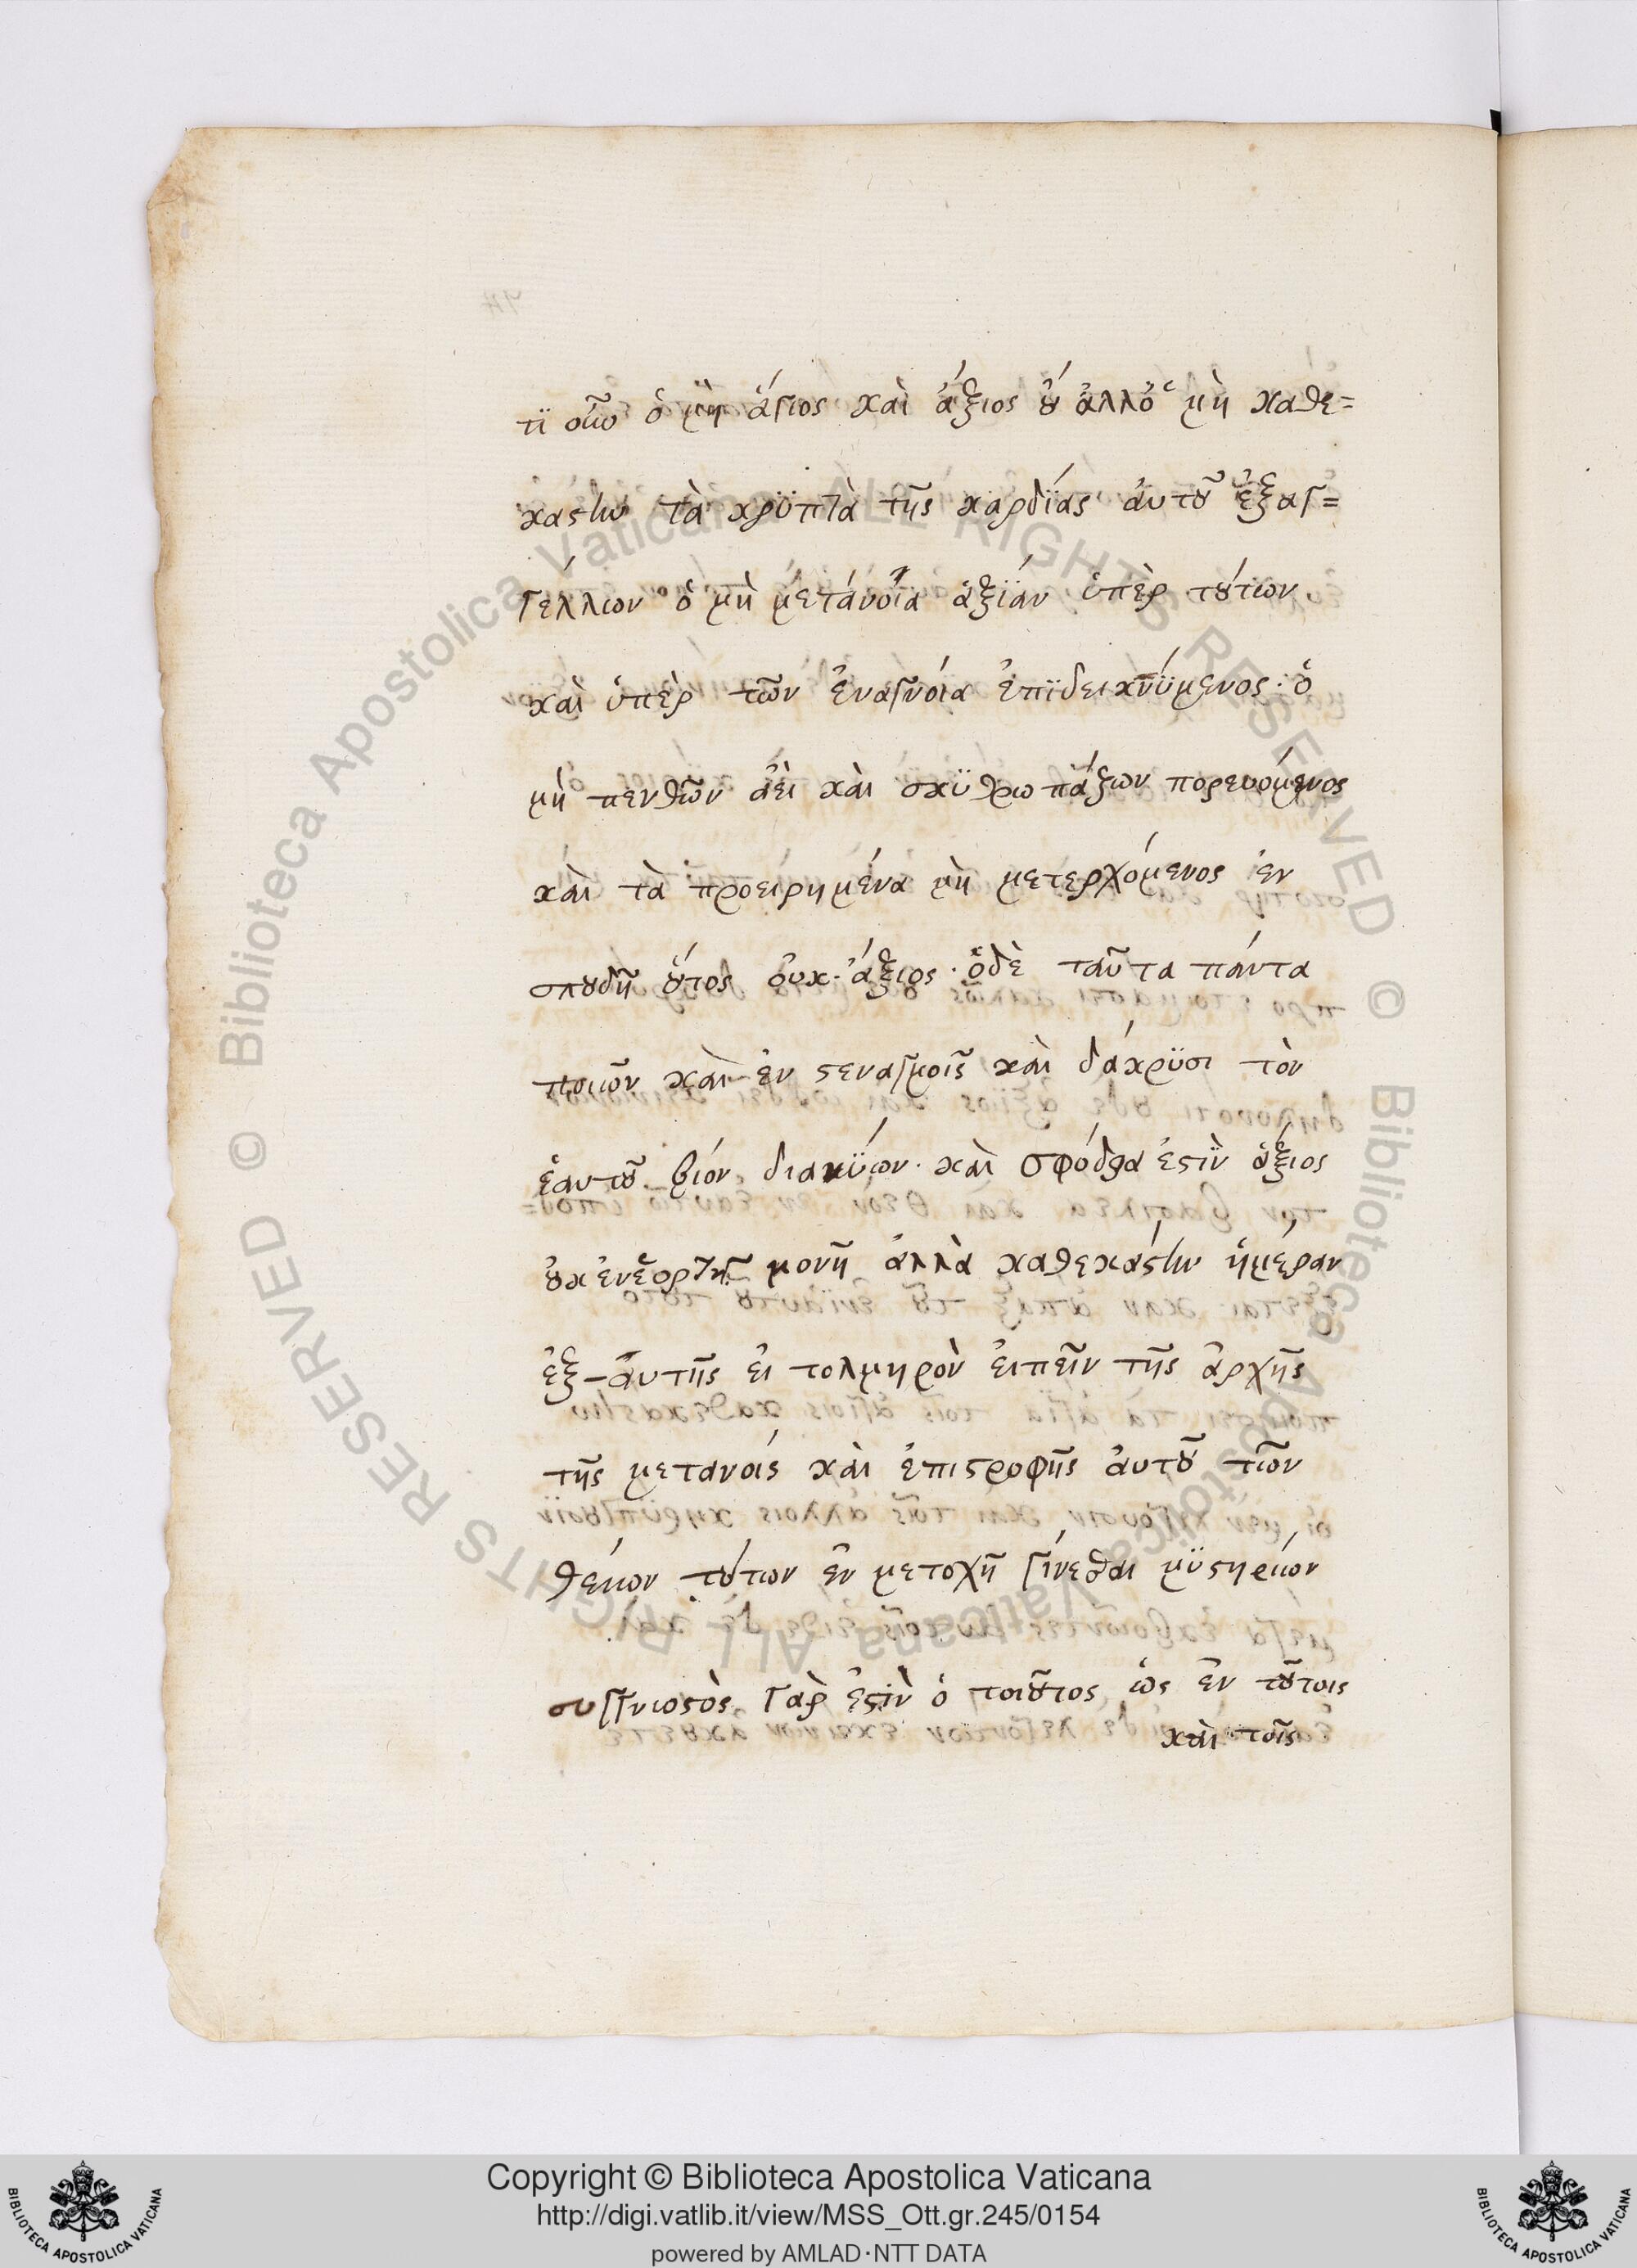 τϊ οὖν ὁ μὴ ἅγιος καὶ ἄξιος οὐ ἀλλ᾽ ὁ μὴ καθε=
κάστην τὰ κρϋπτὰ τῆς καρδϊας ἀυτοῦ ἐξαγ=
γέλλων ὁ μὴ μετάνοϊα ἀξϊάν ὑπὲρ τούτων
καὶ ὑπὲρ τῶν ἐναγνοία ἐπϊδεικνϋμενος· ὁ
μὴ πενθῶν ἀὲι καὶ σκϋθρωπάζων πορευόμενος
καὶ τὰ προειρημένα μὴ μετερχόμενος ἐν
σπουδῆ οὗτος ὀυκ ἄξιος· ὁδὲ ταῦτα πάντα
ποιῶν καὶ ἐν στεναγμοῖς καὶ δάκρϋσι τὸν
ἑαυτοῦ βίον διανϋων· καὶ σφόδρα ἐστὶν ἄξιος
οὐκ ἐνἑορτῆ μονῆ ἀλλὰ καθεκάστην ἡμέραν
ἐξ-ἀυτῆς ἐι τολμηρὸν ἐιπεῖν τῆς ἀρχῆς
τῆς μετανοίς καὶ ἐπιστροφῆς ἀυτοῦ τῶν
θείων τούτων ἐν μετοχῆ γίνεσθαι μϋστηρίων
συγγνωστὸς γὰρ ἐστὶν ὁ τοιοῦτος ὡς ἐν τούτοις
καὶ τοῖς
Copyright © Biblioteca Apostolica Vaticana
http://digi.vatlib.it/view/MSS_Ott.gr.245/0154
powered by AMLAD·NTT DATA
BIBLIOTECA APOSTOLICA VATICANA
BIBLIOTECA APOSTOLICA VATICANA
© Biblioteca Apostolica Vaticana ALL RIGHTS RESERVED
© Biblioteca Apostolica Vaticana ALL RIGHTS RESERVED